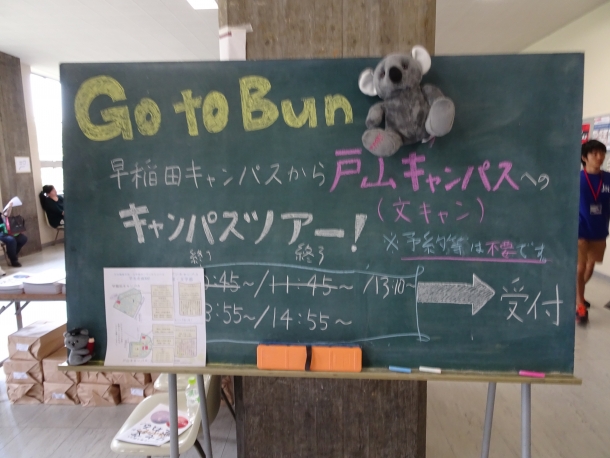 Go to Bun
早稲田キャンパスから戸山キャンパスへの
(文キャン)
キャンパスツアー!
※予約等は不要です
終了 終了
:45~/11:45~/13:10~
:55~/14:55~
受付